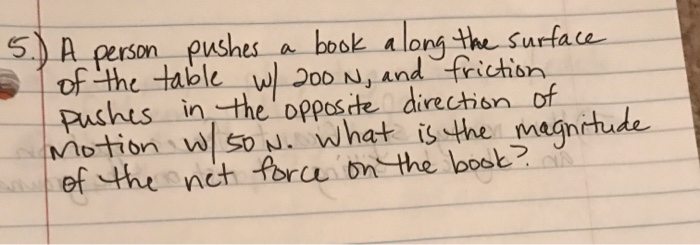 5.) A person pushes a book along the surface
of the table w/ 200 N, and friction
pushes in the opposite direction of
motion w/ 50 N. What is the magnitude
of the net force on the book?